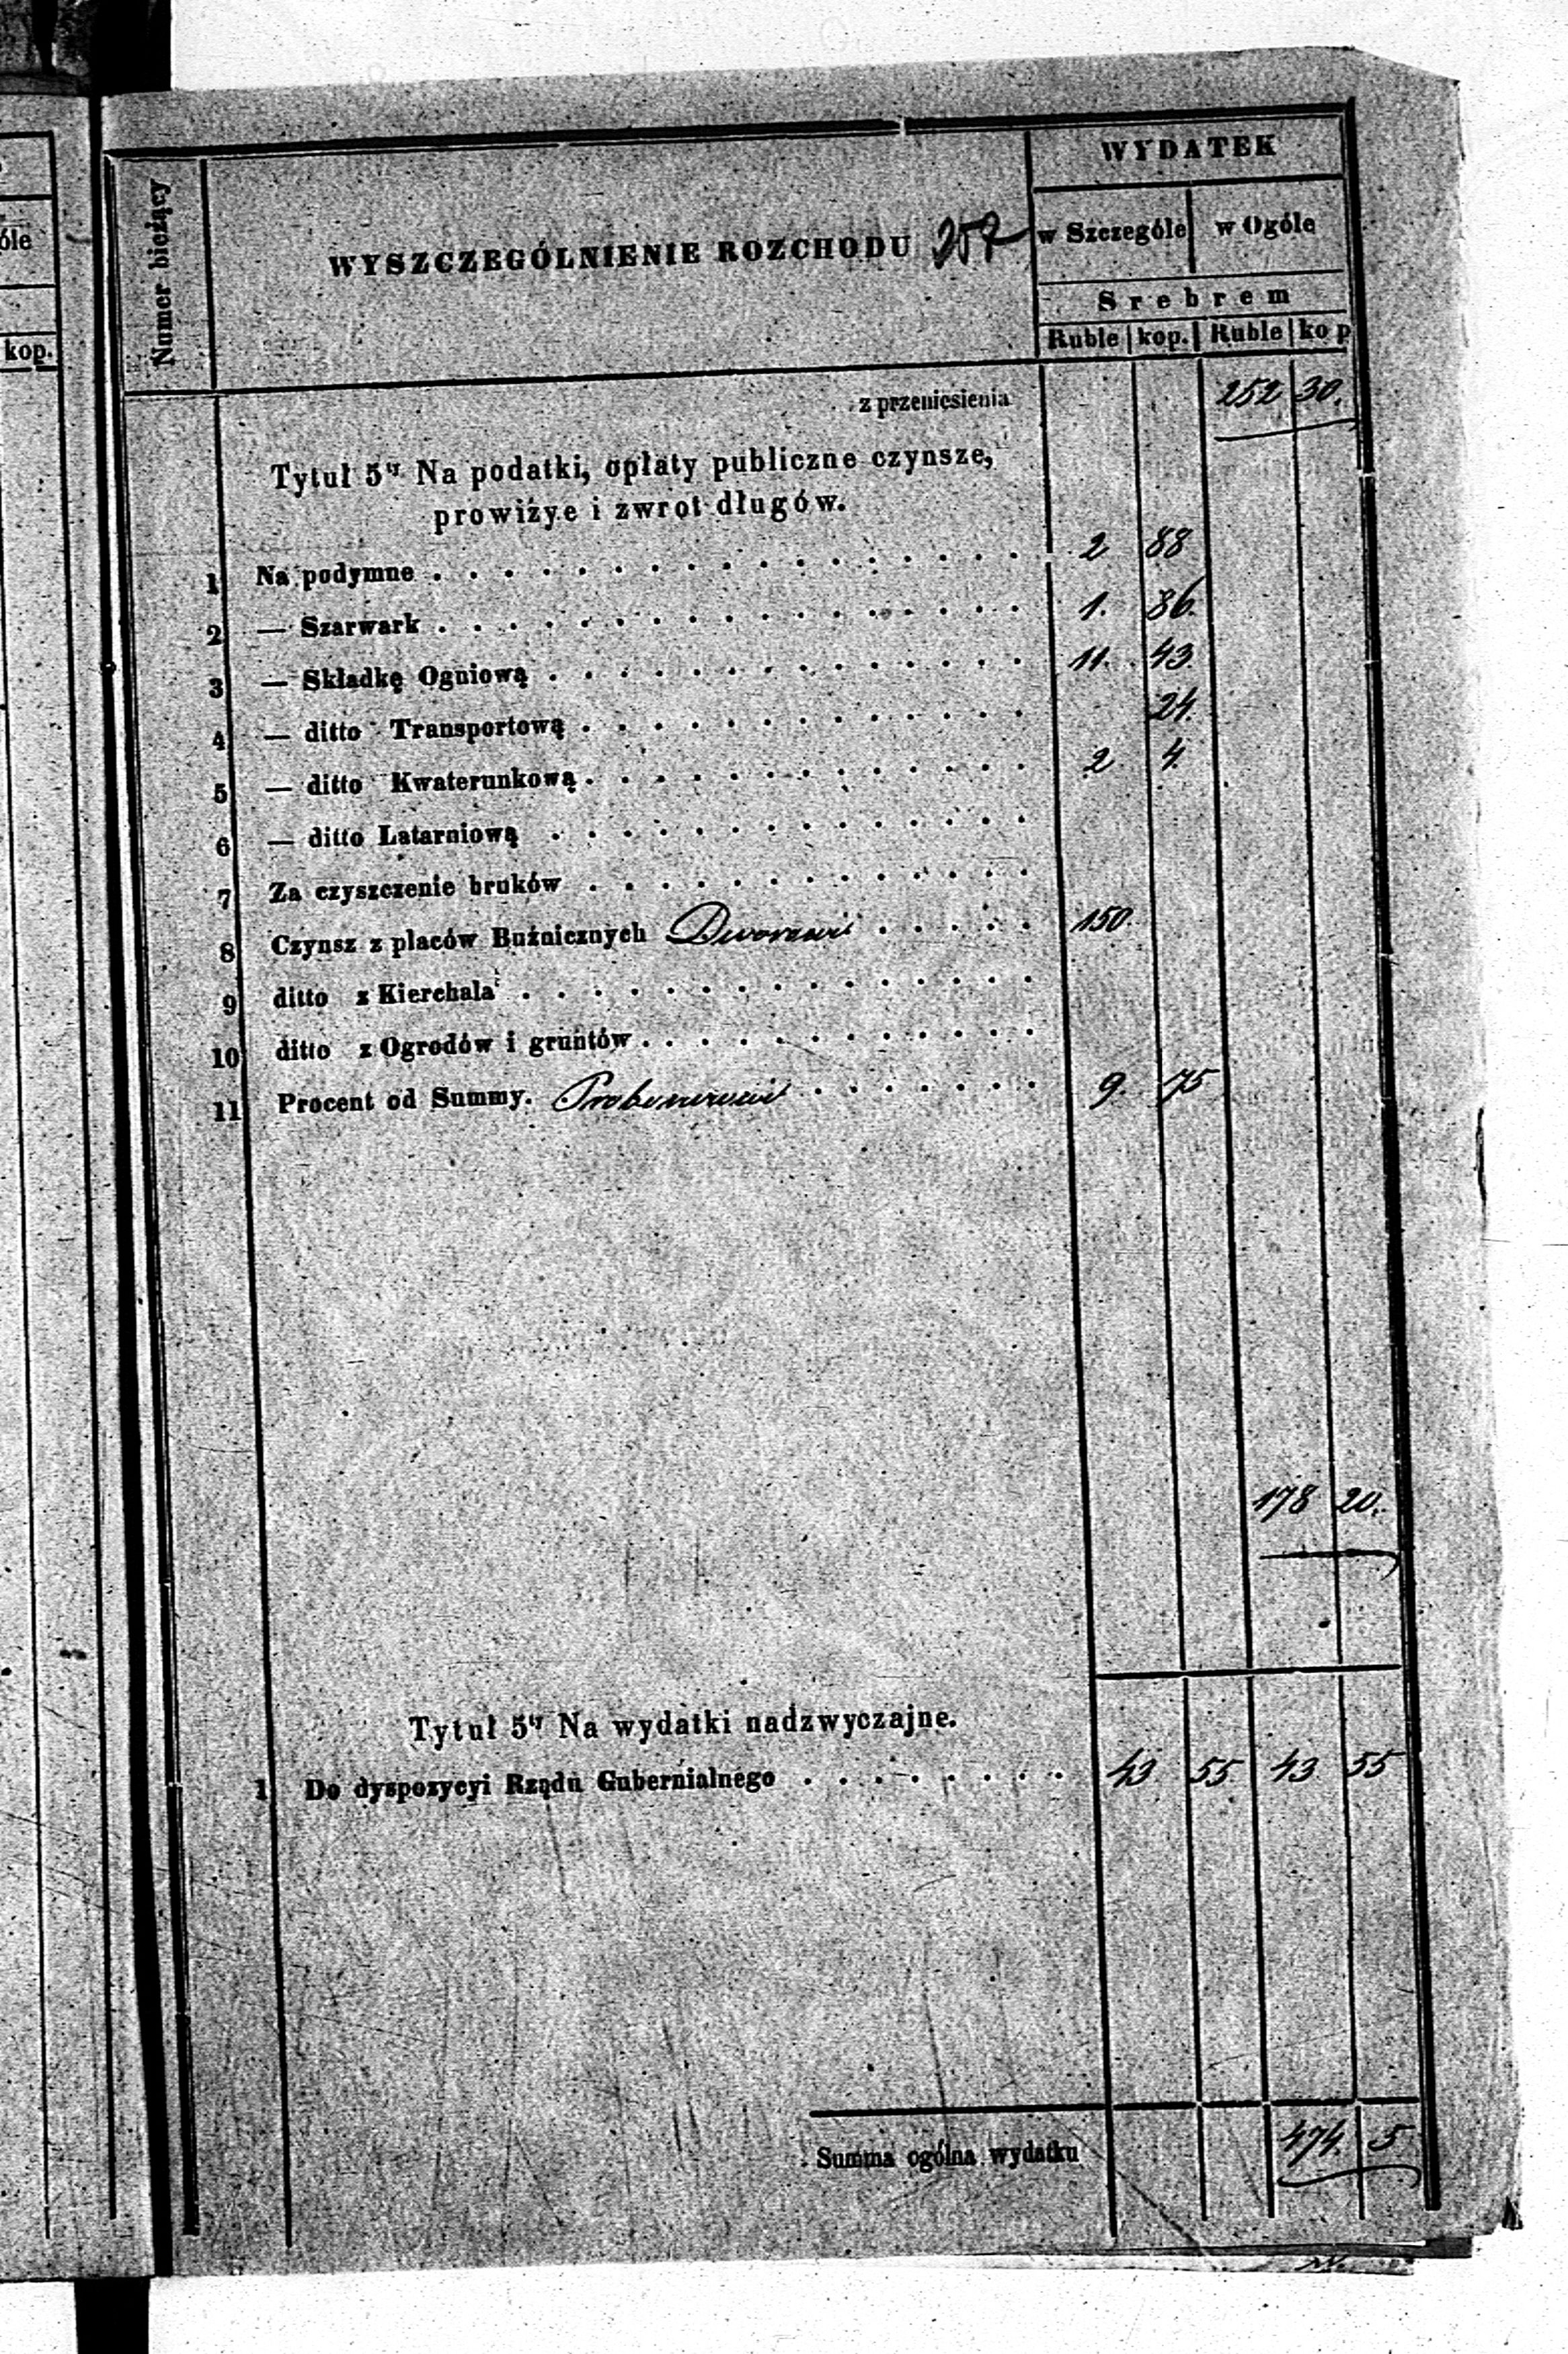 óle
kop.
Numer bieżący
WYSZCZEGÓLNIENIE ROZCHODU 257
WYDATEK
w Szczególe w Ogóle
Srebrem
Ruble kop. Ruble kop
z przeniesienia 252 30.
Tytuł 5ty Na podatki, opłaty publiczne czynsze,
prowizye i zwrot długów.
1 Na podymne . . . . 2 88
2 — Szarwark . . . . 1. 86.
3 — Składkę Ogniową . . . . 11. 43.
4 — ditto Transportową . . . . 24.
5 — ditto Kwaterunkową . . . . 2 4.
6 — ditto Latarniową . . . .
7 Za czyszczenie bruków . . . .
8 Czynsz z placów Buźnicznych Dworowi . . . . 150.
9 ditto z Kierchala . . . .
10 ditto z Ogrodów i gruntów . . . .
11 Procent od Summy. . . . . 9. 75
178 20.
Tytuł 5ty Na wydatki nadzwyczajne.
1 Do dyspozycyi Rządu Gubernialnego . . . . 43 55 43 55
Summa ogólna wydatku 474. 5